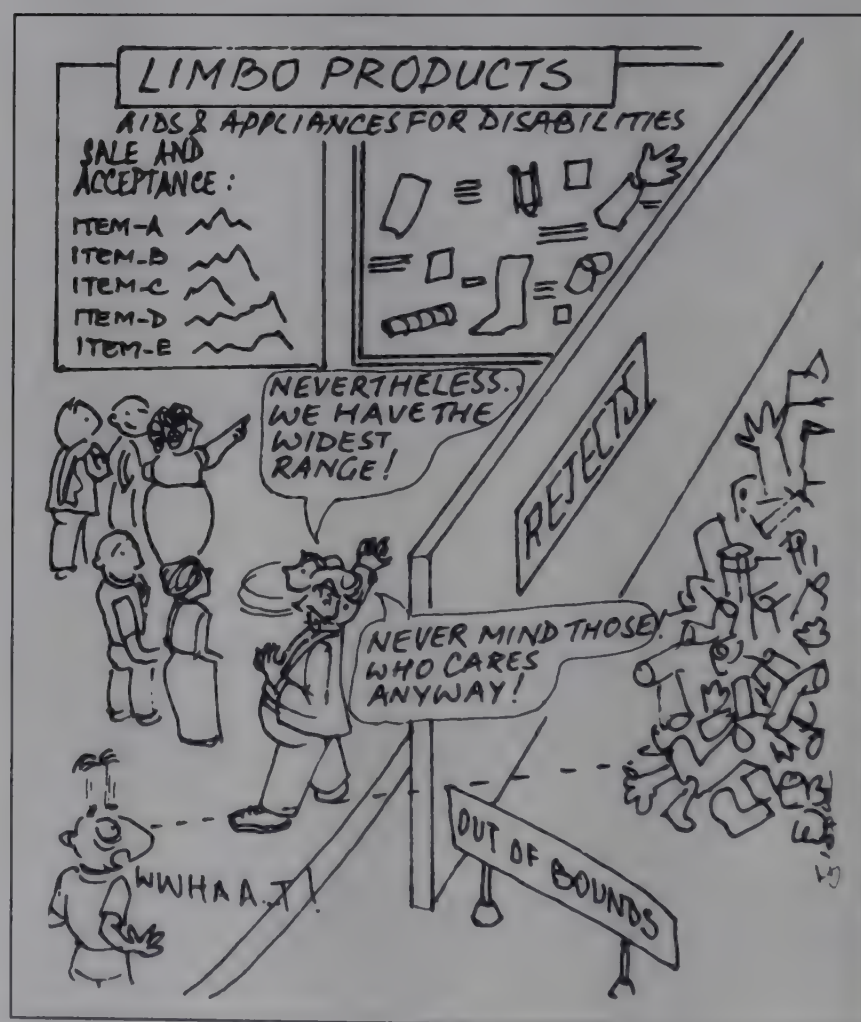 LIMBO PRODUCTS
AIDS & APPLIANCES FOR DISABILITIES
SALE AND
ACCEPTANCE:
ITEM-A
ITEM-B
ITEM-C
ITEM-D
ITEM-E
NEVERTHELESS.
WE HAVE THE
WIDEST
RANGE!
REJECTS
NEVER MIND THOSE!
WHO CARES
ANYWAY!
WWHAA..T!
OUT OF BOUNDS